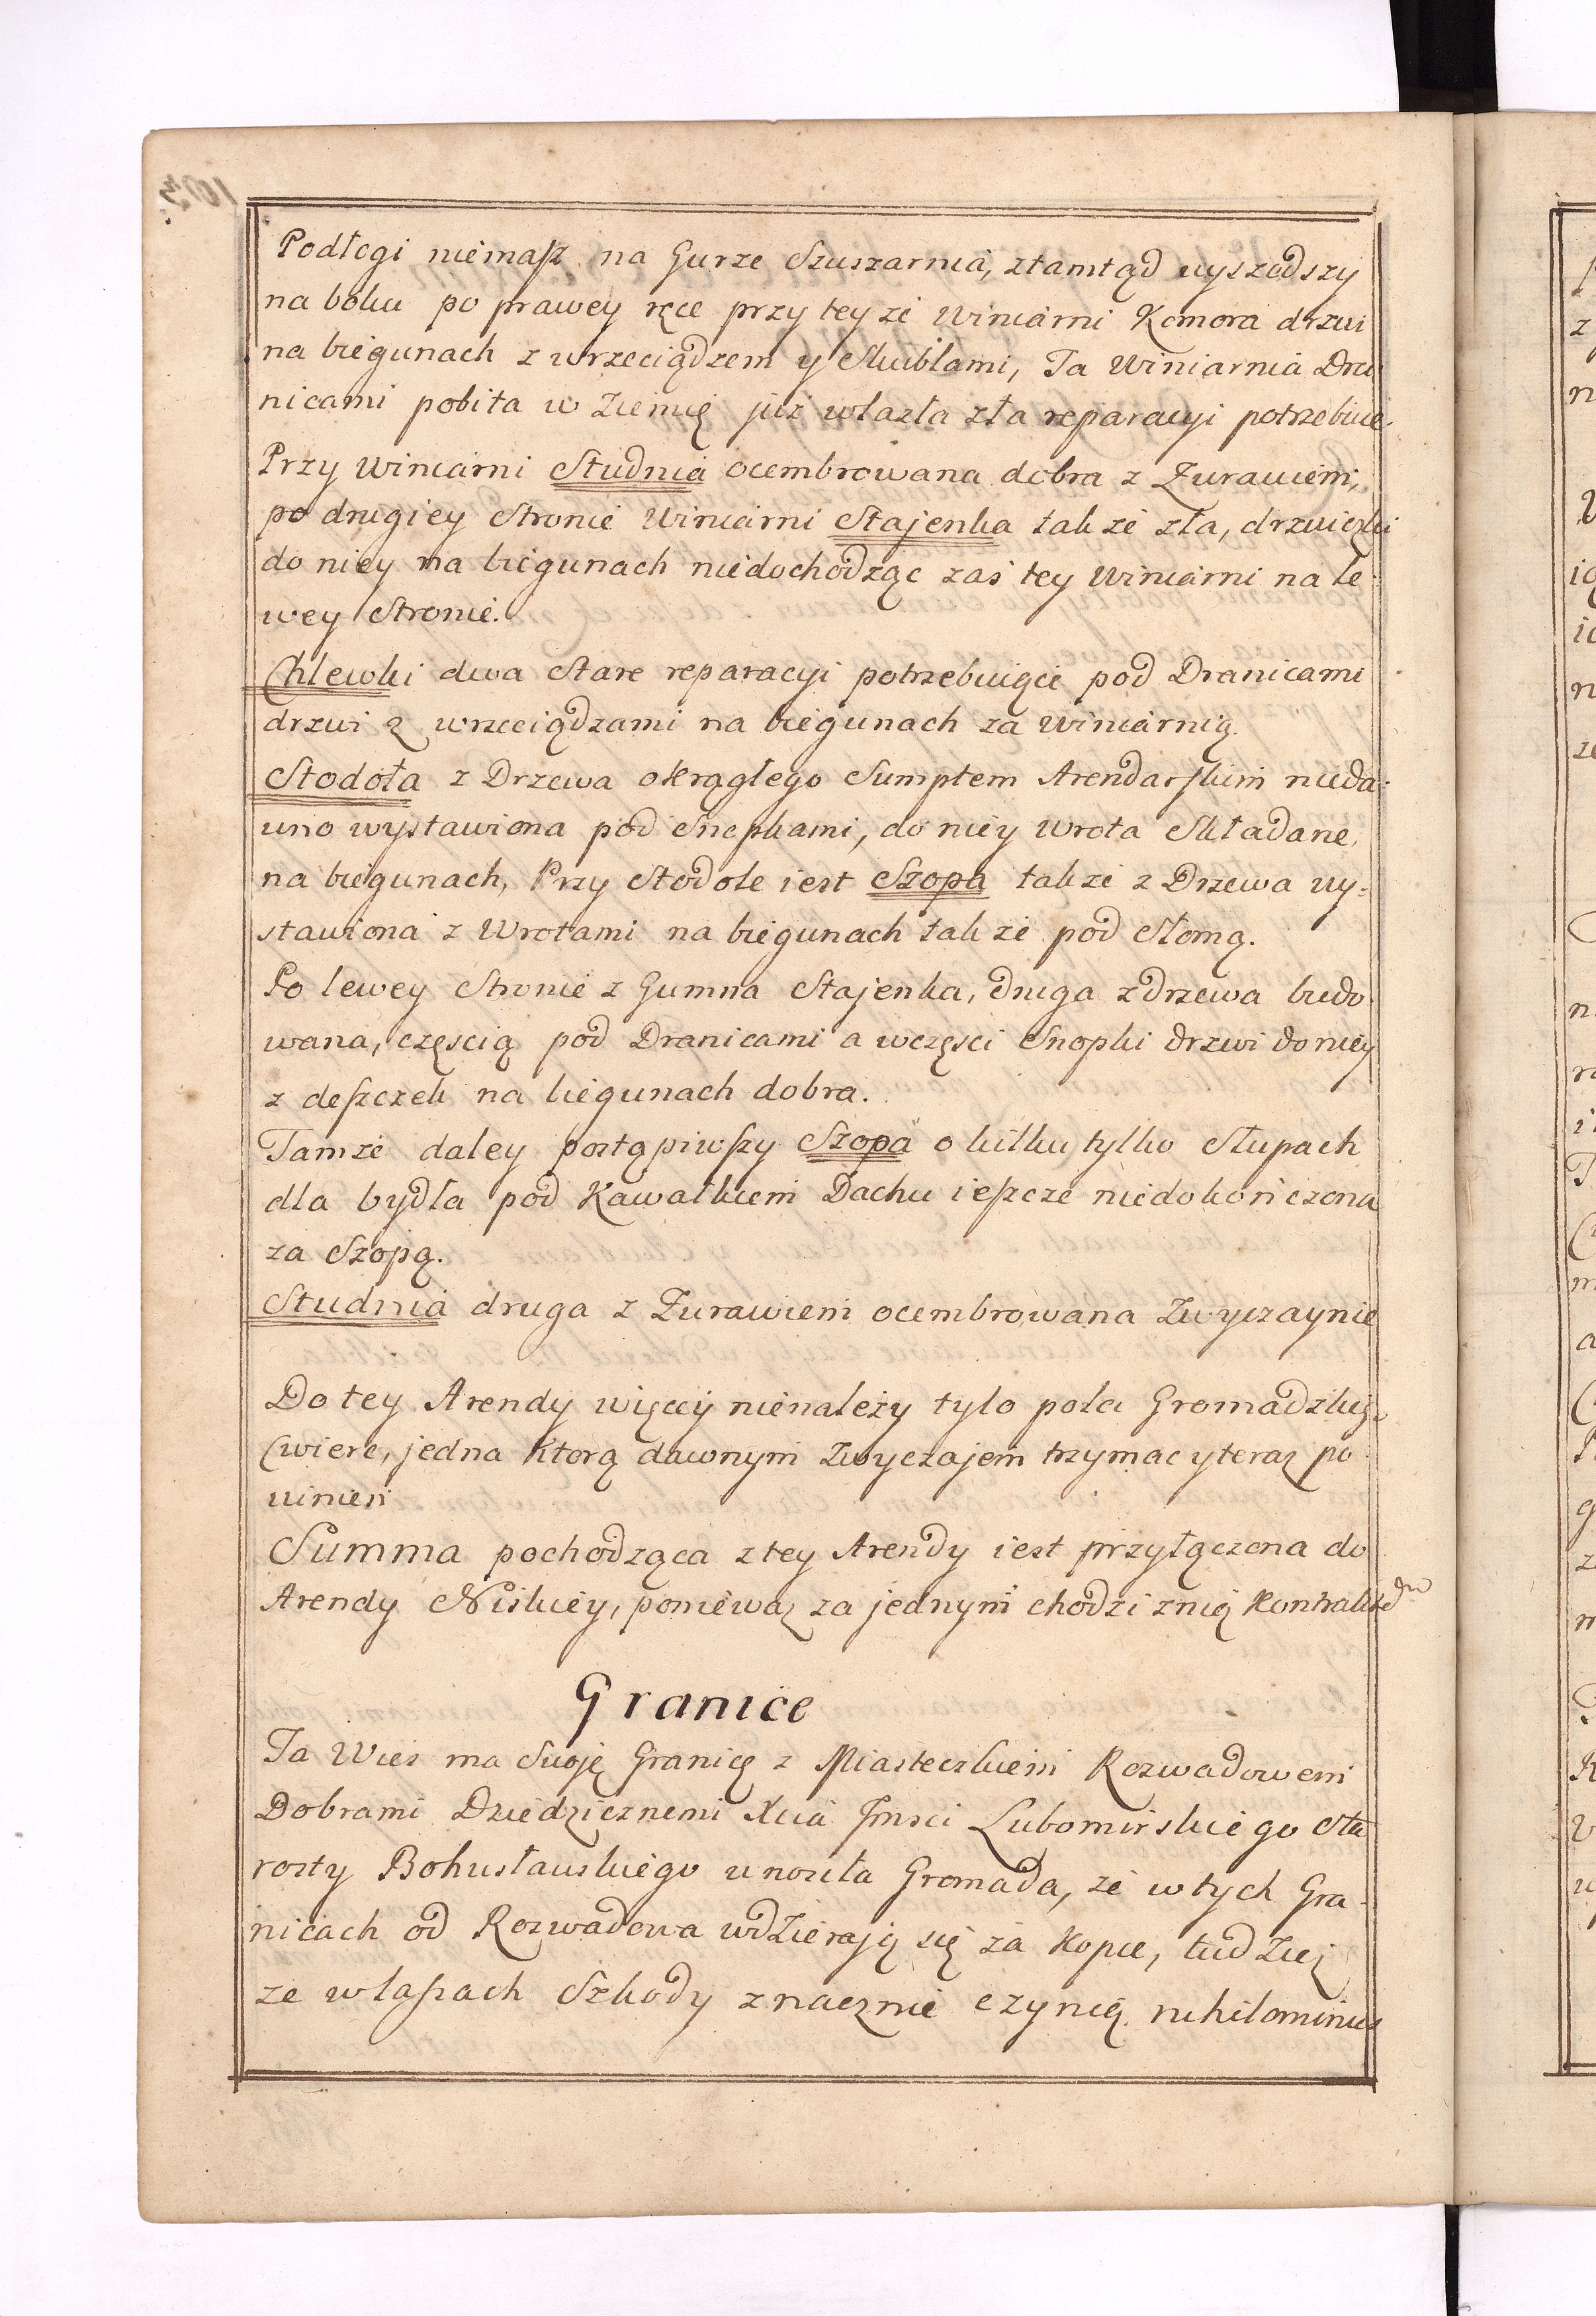 Podłogi niemasz na Gurze Szuszarnia, ztamtąd wyszedszy
na boku po prawey ręce przy teyże Winiarni Komora drzwi
na biegunach z wrzeciądzem y Skublami, Ta Winiarnia Dra
nicami pobita w Ziemię już wlazła zła reparacyi potrzebuie.
Przy Winiarni Studnia ocembrowana dobra z Zurawiem,
po drugiey Stronie Winiarni Stajenka także zła, drzwiczki
do niey na biegunach niedochodząc zaś tey Winiarni na le-
wey Stronie.
Chlewki dwa Stare reparacyi potrzebuiące pod Dranicami
drzwi z wrzeciądzami na biegunach za Winiarnią.
Stodoła z Drzewa okrągłego Sumptem Arendarskim nieda-
wno wystawiona pod Snopkami, do niey Wrota Składane,
na biegunach, Przy Stodole iest Szopa także z Drzewa wy-
stawiona z Wrotami na biegunach także pod Słomą.
Po lewey Stronie z Gumna Stajenka, druga z drzewa budo-
wana, częscią pod Dranicami a wczęsci Snopki drzwi do niey
z deszczek na biegunach dobra.
Tamże daley postąpiwszy Szopa o kilku tylko Słupach
dla bydła pod Kawałkiem Dachu ieszcze niedokończona
za Szopą.
Studnia druga z Zurawiem ocembrowana Zwyczaynie
Do tey Arendy więcey nienależy tylo pola Gromadzkiey
Cwierc, jedna ktorą dawnym Zwyczajem trzymac y teraz po-
winien
Summa pochodząca z tey Arendy iest przyłączona do
Arendy Niskiey, poniewaz za jednym chodzi znią Kontraktem
Granice
Ta Wies ma Swoię Granicę z Miasteczkiem Rozwadowem
Dobrami Dziedzicznemi Xcia Jmsci Lubomirskiego Sta
rosty Bohusławskiego wnosiła Gromada, że w tych Gra-
nicach od Rozwadowa wdzieraią się za Kopce, tudziez
ze w lasach Szkody znacznie czynią nihilominus